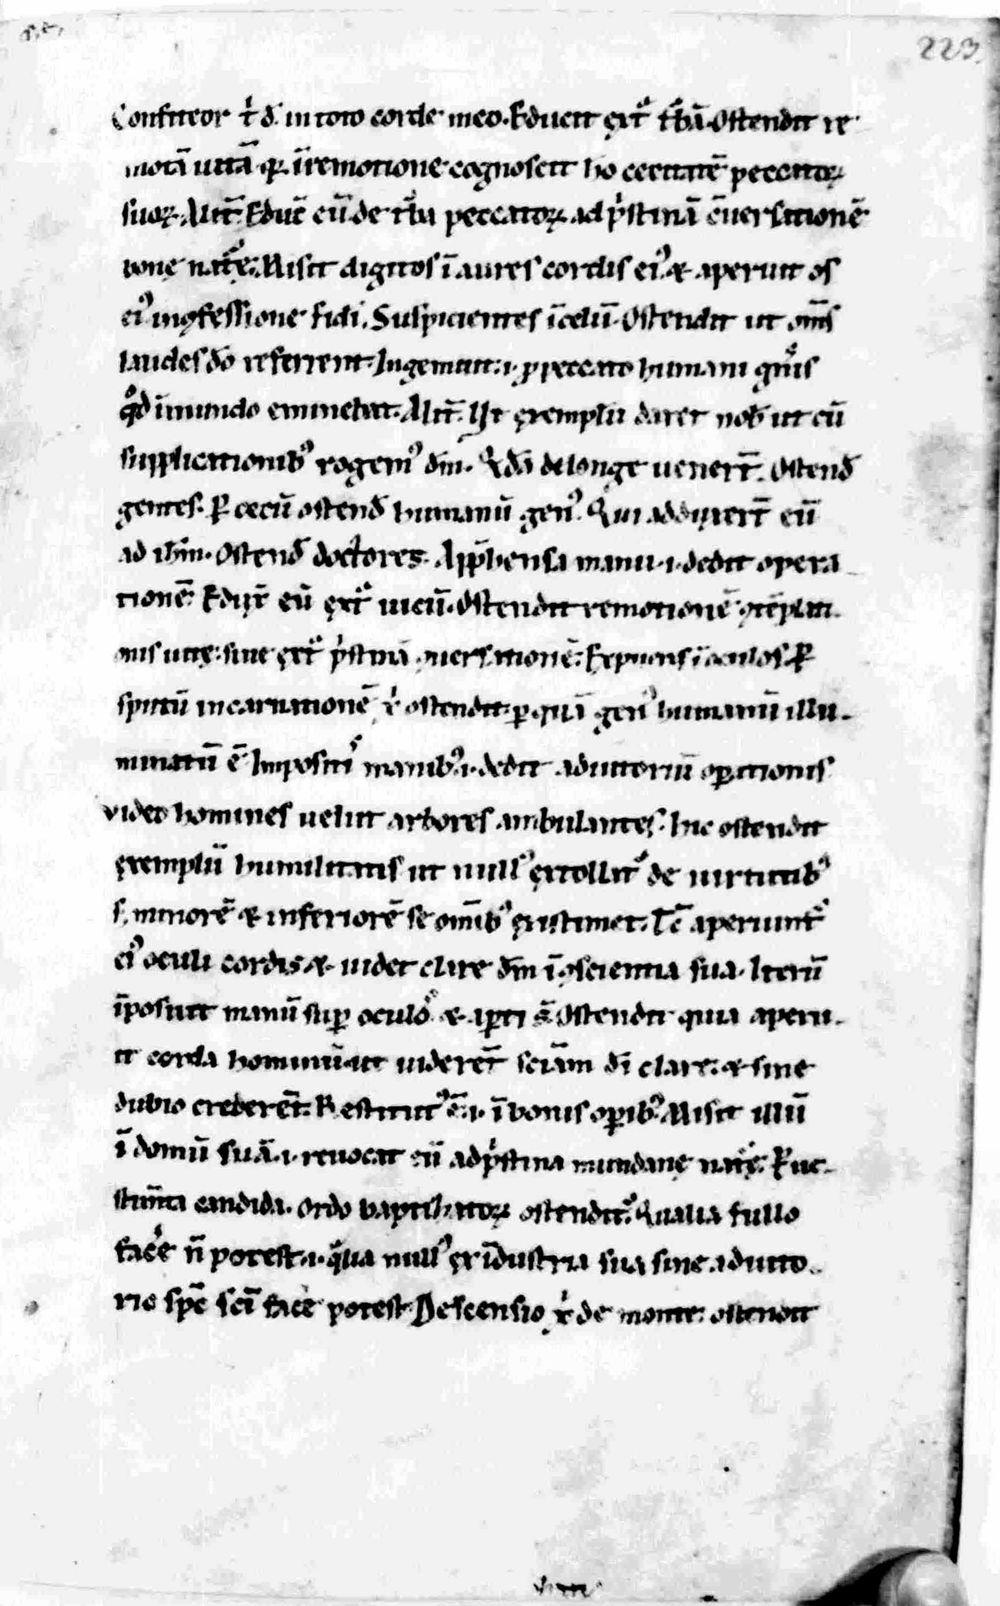 223
Confiteor t̉ d̄ in toto corde meo. Educit ext᷑ t̉bā. Ostendit re
motā uitā. q̄ in remotione cognoscit ho cecitatē peccatoꝝ
suoꝝ. Alit̄. Educ̄ eū de t̉ba peccatoꝝ ad p̉stinā c̄uersationē
bone nat᷑ę. Misit digitos ī aures cordis ei᷒ & aperuit os
ei᷒ in ꝯfessione fidi. Suspicientes ī celū. Ostendit ut om̄s
laudes dō referrent. Ingemuit .i. ꝓ peccato humani gn̄is
qd̉ ī mundo eminebat. Alit̄. Ut exemplū daret nob̄ ut cū
supplicationib᷒ rogem᷒ dm̄. Qđā de longe uenert̄. Ostend̄
gentes. P cecū ostend̄ humanū gen᷒. Qui adduxert̄ eū
ad ihm̄. Ostend̄ doctores. App̄hensa manu .i. dedit opera
tionē. Edux̄ eū ext᷑ uicū. Ostendit remotionē ꝯtēplati
onis uite. siue ext᷑ p̉stinā ꝯuersationē. Expuens ī oculos. P
sputū incarnationē x̉ ostendit. ꝑ quā gen᷒ humanū illu
minatū ē. Impositis manib᷒ .i. dedit adiutoriū oꝑationis
video homines uelut arbores ambulantes. hic ostendit
exemplū humilitatis ut null᷒ extollit᷑ de uirtutib᷒
s; minorē & inferiorē se om̄ib᷒ existimet. Tc̄ aperiunt᷑
ei᷒ oculi cordis & uidet clare dm̄ ī ꝯscientia sua. Iterū
īposuit manū suꝑ oculos & aꝑti s̄. Ostendit quia aperu
it corda hominū ut uiderēt sciām dī clare. & sine
dubio crederēt. Restitut᷒ ē .i. ī bonis oꝑib᷒. Misit illū
ī domū suā .i. reuocat eū ad p̉stina mundane nat᷑ę. P ue
stimt̄a candida. ordo baptizatoꝝ ostendit᷑. Qualia fullo
facē n̄ potest .i. q̉a null᷒ ex īdustria sua sine adiuto
rio spc̄ scī facē potest. Descensio x̉ de monte. ostendit